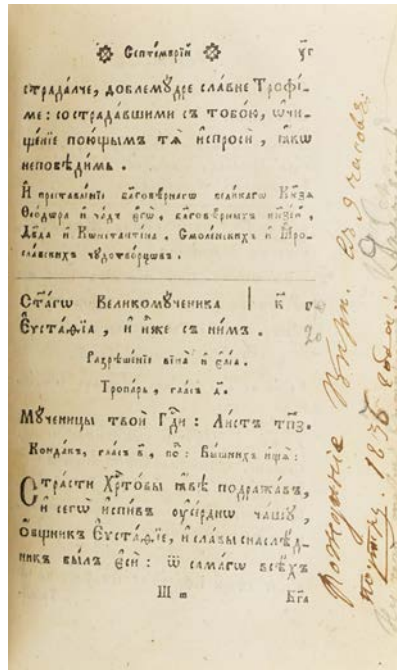 Септе́мврїй
страда́лче, доблемꙋ́дре сла́вне Трофі́-
ме: сострада́вшими съ тобо́ю, ѡ҆чи-
ще́нїе пою́щымъ тѧ̀ и҆спросѝ, ꙗ҆́кѡ
непобѣди́мь.
И҆ преставле́нїе бл҃гове́рнагѡ вели́кагѡ Кнѧ́зѧ
Ѳео́дѡра и҆ ча̑дъ є҆гѡ̀, бл҃гове́рныхъ кнѧзе́й,
Дв҃да и҆ Кѡнстанті́на, Смоле́нскихъ и҆ Ꙗ҆ро-
сла́вскихъ чꙋдотво́рцѡвъ.
Ст҃а́гѡ Великомꙋ́ченика | к҃
Є҆ѵста́ѳїа, и҆ и҆̀же съ ни́мъ.
20
Разрѣше́нїе вїна̀ и҆ є҆ле́а.
Тропа́рь, гла́съ д҃.
Мꙋ́ченицы твоѝ Гдⷭ҇и: Ли́стъ тп҃з.
Конда́къ, гла́съ в҃, под̾: Вы́шнихъ и҆щѧ̀:
Стра́сти Хрⷭ҇то́вы ꙗ҆́вѣ подража́въ,
и҆ сегѡ̀ и҆спи́въ ᲂу҆се́рднѡ ча́шꙋ,
ѻ҆́бщникъ Є҆ѵста́ѳїе, и҆ сла́вы снаслѣ́д-
никъ бы́лъ є҆сѝ: ѿ самагѡ̀ всѣ́хъ
Ш
Бг҃а
Рождение
въ 9 часовъ
поутру. 1836 года.